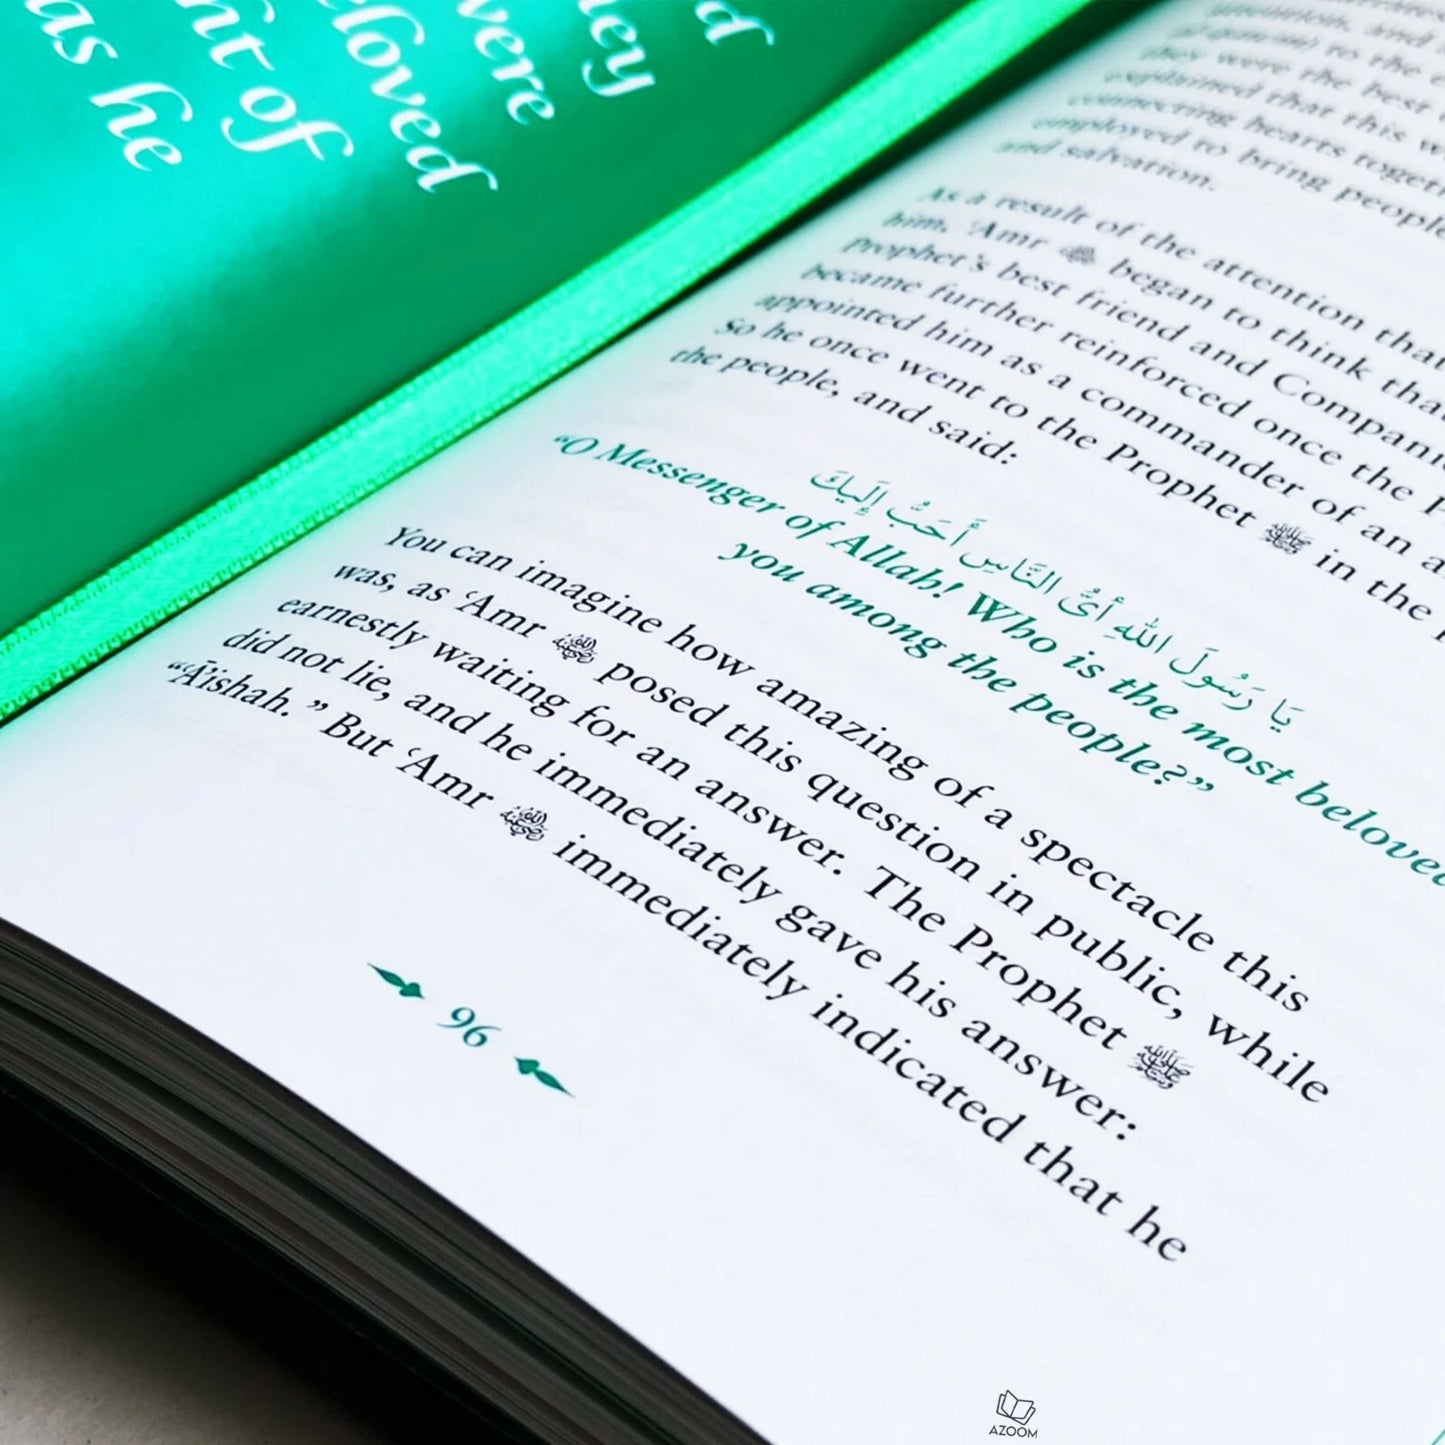 d
ney
were
eloved
nt of
as he
intention, and
to the e
they were the best
explained that this w
connecting hearts togeth
employed to bring people
and salvation.
As a result of the attention that
him, ‘Amr ﵁ began to think that
Prophet’s best friend and Compani
became further reinforced once the P
appointed him as a commander of an a
So he once went to the Prophet ﷺ in the
the people, and said:
يَا رَسُولَ اللهِ أَيُّ النَّاسِ أَحَبُّ إِلَيكَ
“O Messenger of Allah! Who is the most beloved
you among the people?”
You can imagine how amazing of a spectacle this
was, as ‘Amr ﵁ posed this question in public, while
earnestly waiting for an answer. The Prophet ﷺ
did not lie, and he immediately gave his answer:
“‘Ā’ishah.” But ‘Amr ﵁ immediately indicated that he
96
AZOOM